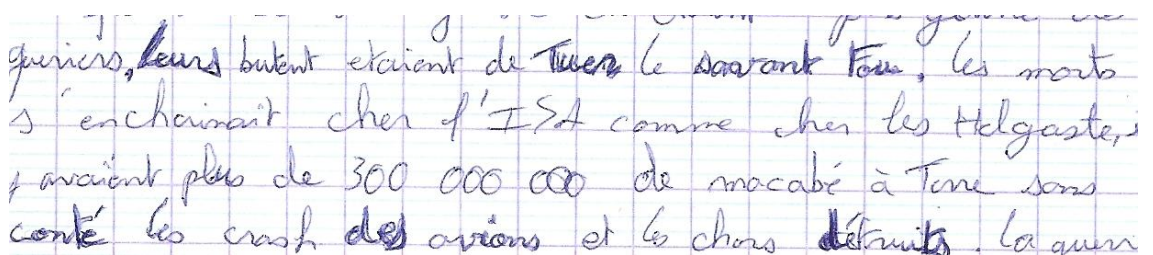 gueriers, leurs butent etaient de Tuer le savant Fou. les morts
s'enchainait cher l'ISA comme cher les Helgaste, i
y avaient plus de 300 000 000 de macabé à Terre sans
conté les crash des avions et les chars détruits. la guerr